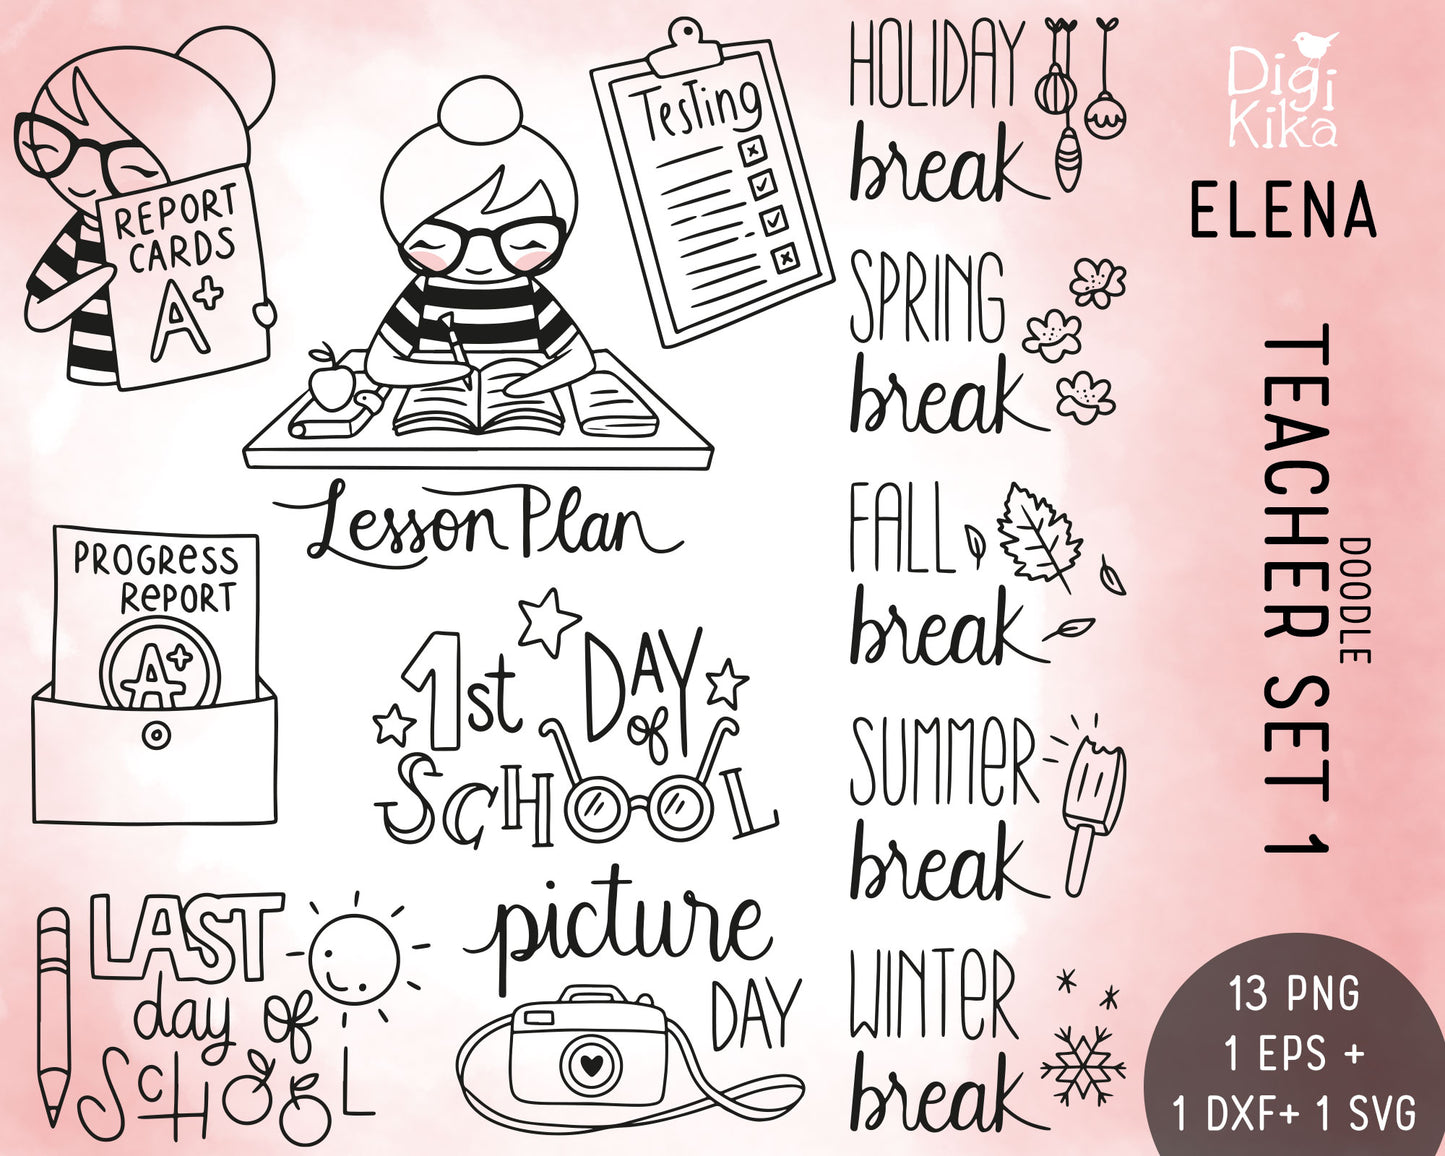 REPORT
CARDS
A+
Testing
Lesson Plan
PROGRESS
REPORT
A+
1st DAY
of
SCHOOL
LAST
day of
SCHOOL
picture
DAY
HOLIDAY
break
SPRING
break
FALL
break
SUMMER
break
WINTER
break
Digi
Kika
ELENA
TEACHER SET 1
DOODLE
13 PNG
1 EPS +
1 DXF+ 1 SVG